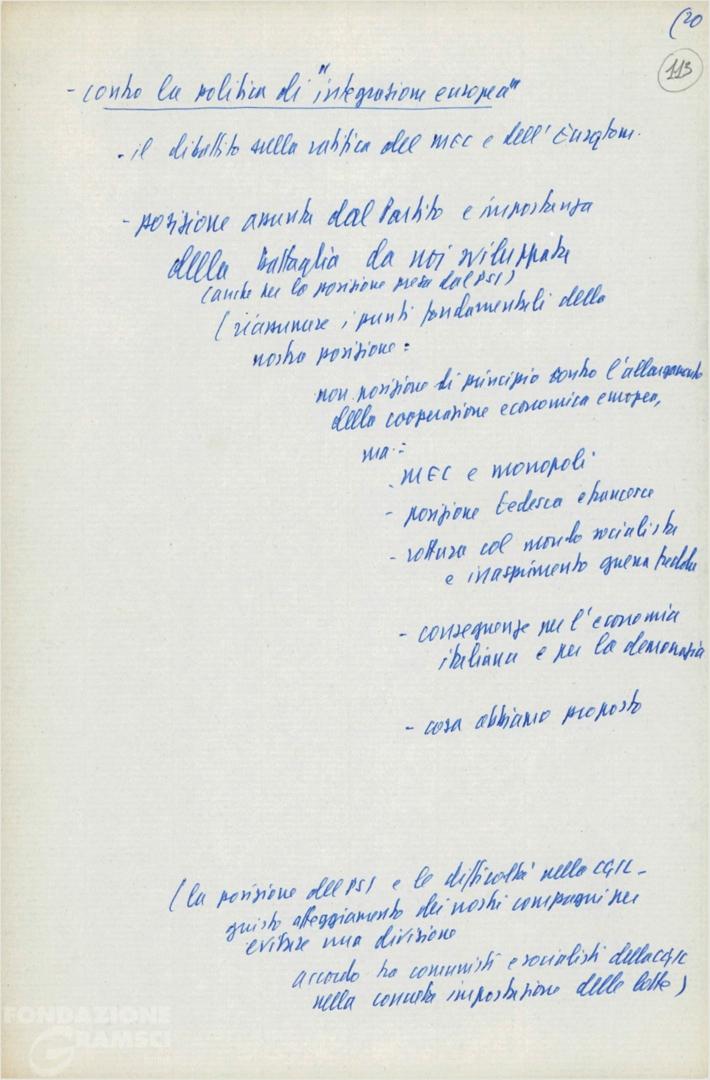 (20
113
- contro la politica di "integrazione europea"
- il dibattito sulla ratifica del MEC e dell'Euratom.
- posizione assunta dal Partito e importanza
della battaglia da noi sviluppata
(anche per la posizione presa dal PSI)
(riassumere i punti fondamentali della
nostra posizione:
non posizione di principio contro l'allargamento
della cooperazione economica europea,
ma:
- MEC e monopoli
- posizione tedesca e francese
- rottura col mondo socialista
e inasprimento guerra fredda
- conseguenze per l'economia
italiana e per la democrazia
- cosa abbiamo proposto
(la posizione del PSI e le difficoltà nella CGIL -
giusto atteggiamento dei nostri compagni per
evitare una divisione
accordo tra comunisti e socialisti della CGIL
nella concreta impostazione delle lotte)
FONDAZIONE
GRAMSCI